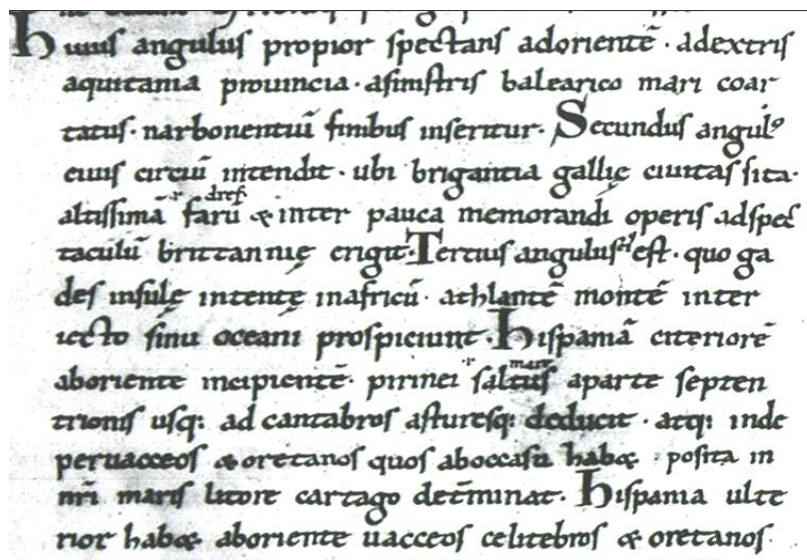 Huius angulus propior spectans adorientē · adextris
aquitania prouincia · asinistris balearico mari coar
tatus · narbonentiū finibus inseritur · Secundus angulꝰ
eius circiū intendit · ubi brigantia gallię ciuitas sita ·
altissimā farū & inter pauca memorandi operis adspec
taculū brittannię erigit · Tertius angulus est · quo ga
des insulę intentę inafricū · athlantē montē inter
iecto sinu oceani prospiciunt · Hispaniā citeriorē
aboriente incipientē · pirinei saltus aparte septen
trionis usq: ad cantabros asturesq: deducit · atq: inde
peruacceos & oretanos quos aboccasu hab& · posita in
nr̄i maris litore cartago det̄minat · Hispania ulte
rior hab& aboriente uacceos celitebros & oretanos ·